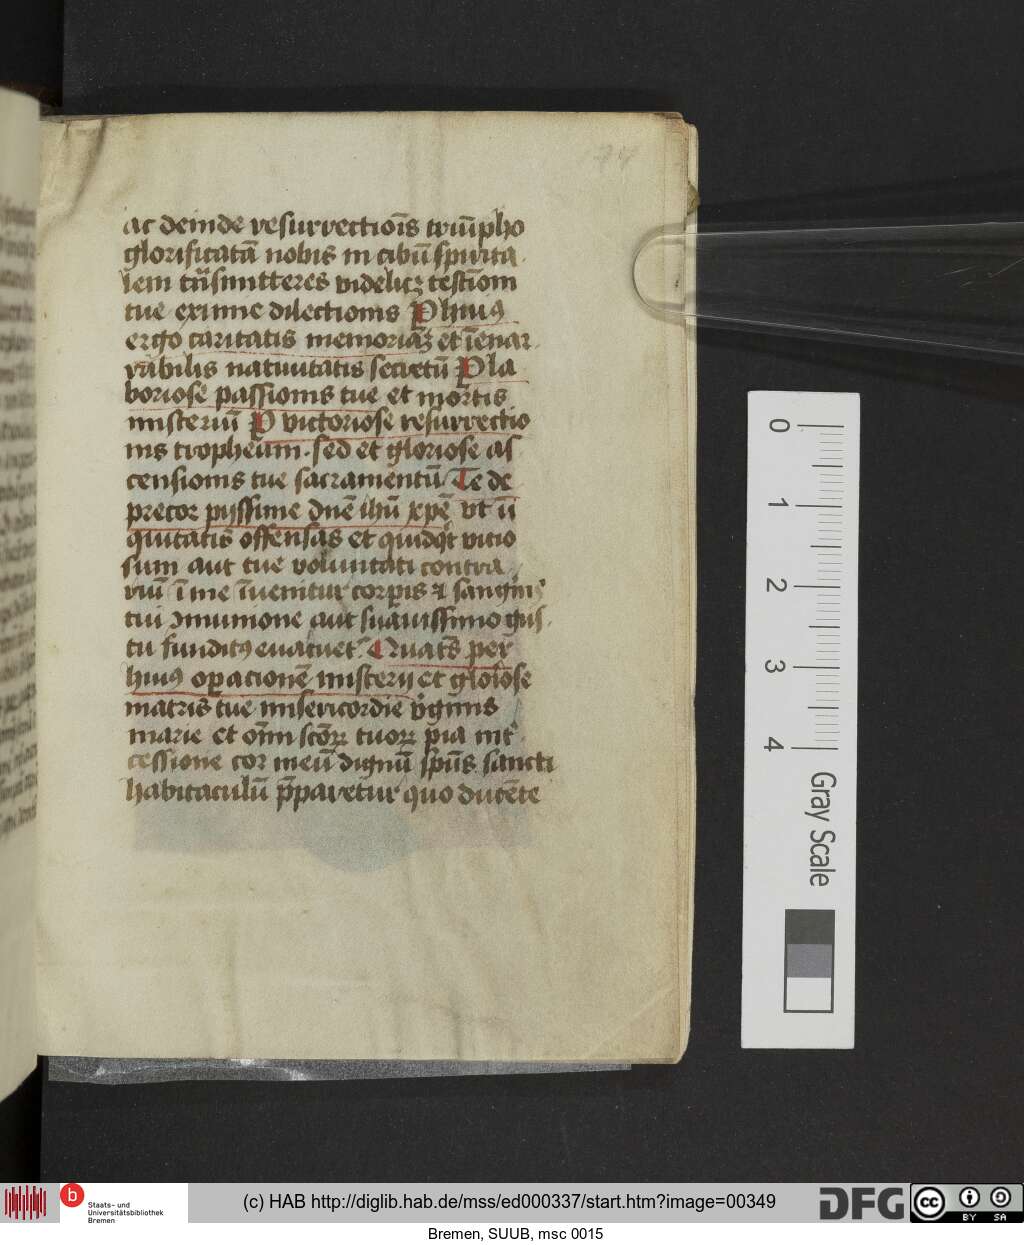 174
ac deinde resurrectiōis triūpho
glorificatā nobis in cibū spirita
lem trāsmitteres videlicz testiom
tue eximie dilectionis P huiꝯ
ergo caritatis memoriā et īenar
rabilis natiuitatis secretū P la
boriose passionis tue et mortis
misteriū P victoriose resurrectio
nis tropheum. sed et gloriose as
censionis tue sacramentū Te de
precor pijssime dn̄e ihū xp̄e vt ini
quitatis offensas et quidqt vicio
sum aut tue voluntati contra
riū ī me īuenitur corpis ⁊ sanginis
tui ꝯmunione aut suauissimo gus
tu funditꝯ euacuet. Quatꝰ per
huiꝯ operationē misterij et gloriose
matris tue misericordie v̓ginis
marie et oīm scōꝝ tuoꝝ pia int̓
cessione cor meū dignū sp̄us sancti
habitaculū p̄paretur quo ducēte
0 1 2 3 4
Gray Scale
b
Staats- und
Universitätsbibliothek
Bremen
(c) HAB http://diglib.hab.de/mss/ed000337/start.htm?image=00349
DFG
cc
BY SA
Bremen, SUUB, msc 0015